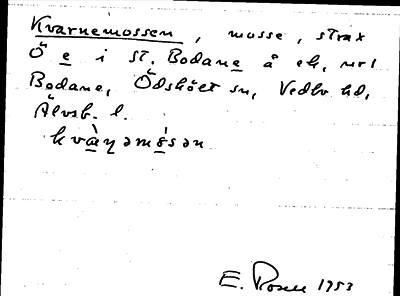 Kvarnemossen, mosse, strax
Ö e i st. Bodane å ek, nrl
Bodane, Ödskölt sn, Vedbo hd,
Älvsb. l.
kvὰɳəmɵ́sən
E. Rosell 1953